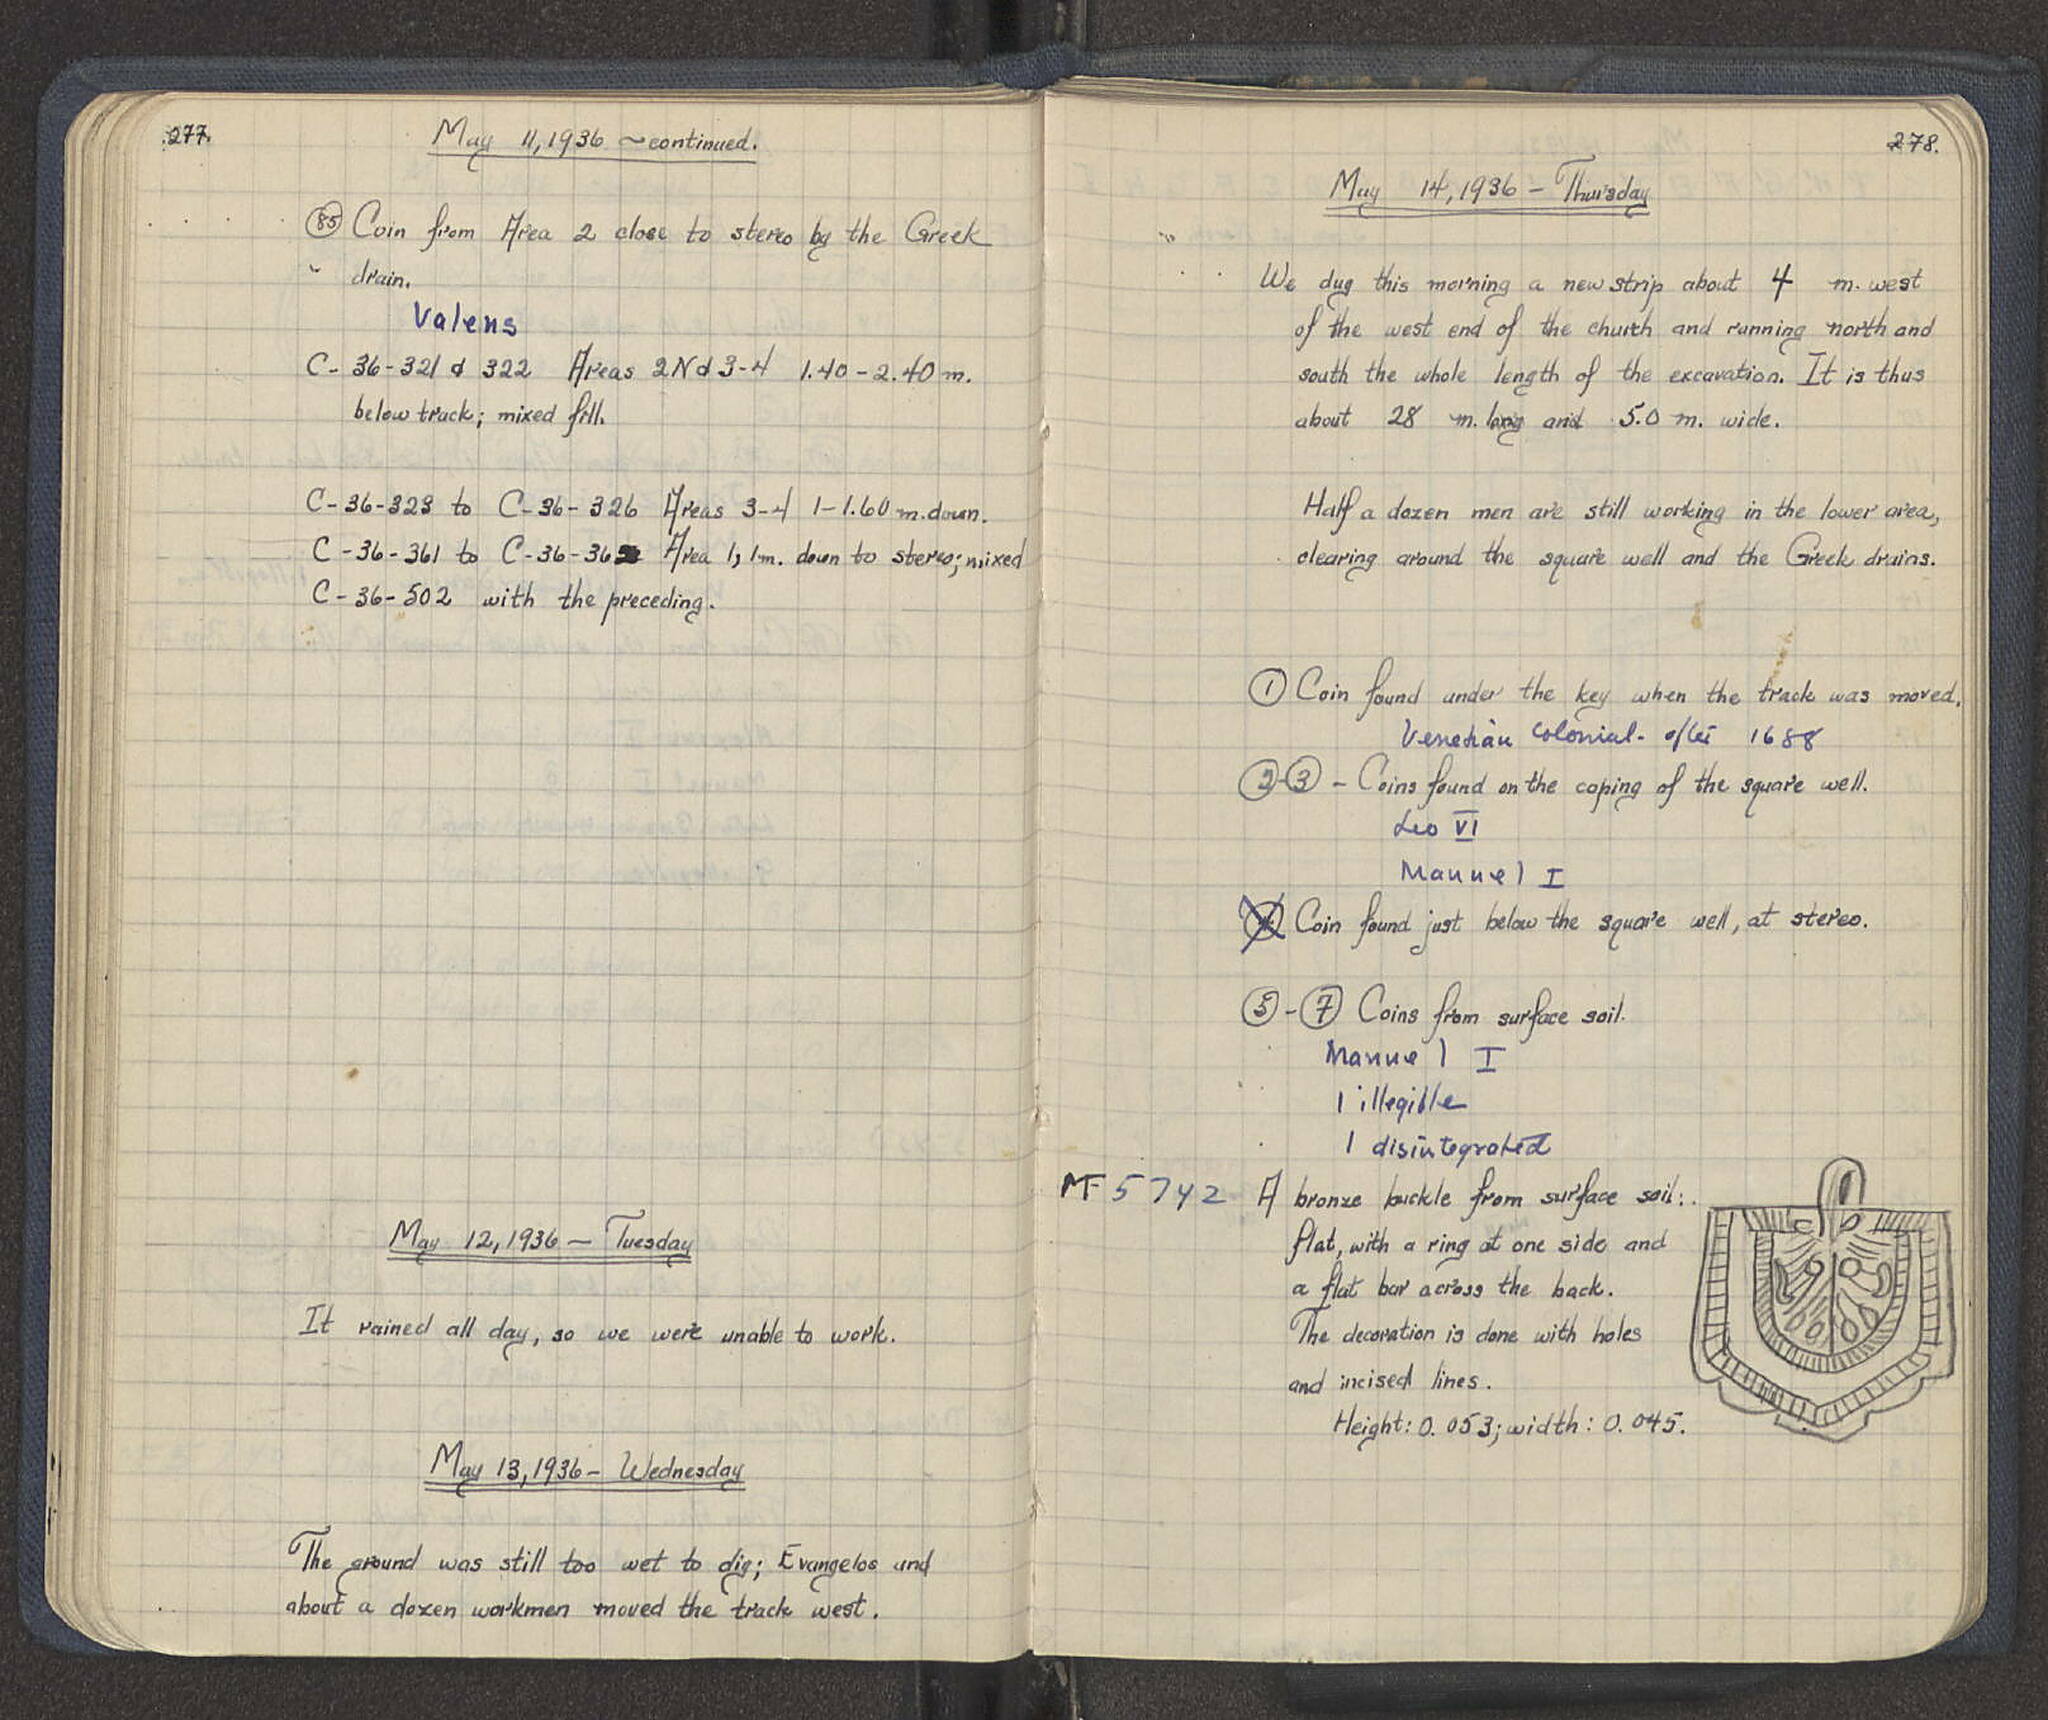 277.
May 11, 1936 ~ continued.
(85) Coin from Area 2 close to stereo by the Greek
drain.
Valens
C-36-321 & 322 Areas 2N & 3-4 1.40 - 2.40 m.
below track; mixed fill.
C-36-323 to C-36-326 Areas 3-4 1-1.60 m. down.
C-36-361 to C-36-36 Area 1, 1m. down to stereo; mixed
C-36-502 with the preceding.
May 12, 1936 - Tuesday
It rained all day, so we were unable to work.
May 13, 1936 - Wednesday
The ground was still too wet to dig; Evangelos and
about a dozen workmen moved the track west.
278.
May 14, 1936 - Thursday
We dug this morning a new strip about 4 m. west
of the west end of the church and running north and
south the whole length of the excavation. It is thus
about 28 m. long and 5.0 m. wide.
Half a dozen men are still working in the lower area,
clearing around the square well and the Greek drains.
(1) Coin found under the key when the track was moved.
Venetian Colonial - after 1688
(2)-(3) - Coins found on the coping of the square well.
Leo VI
Manuel I
(4) Coin found just below the square well, at stereo.
(5)-(7) Coins from surface soil.
Manuel I
1 illegible
1 disintegrated
MF 5742 A bronze buckle from surface soil:
flat, with a ring at one side and
a flat bar across the back.
The decoration is done with holes
and incised lines.
Height: 0.053; width: 0.045.